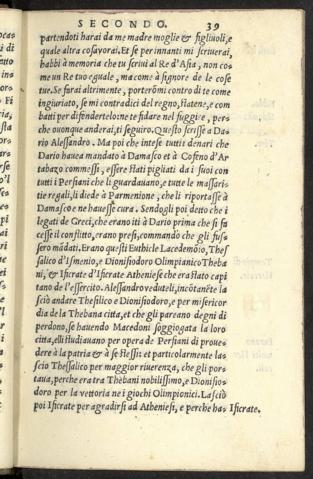 SECONDO. 39
partendoti harai da me madre moglie & figliuoli, e
quale altra cosa vorai. Et se per innanti mi scriuerai,
habbi à memoria che tu scriui al Re d'Asia, non co=
me un Re tuo eguale, ma come à signore de le cose
tue. Se farai altrimente, porterômi contro di te come
ingiuriato, se mi contradici del regno, statene, e com
batti per difendertelo: ne te fidare nel fuggire, per=
che ouonque anderai, ti seguiro. Questo scrisse a Da=
rio Alessandro. Ma poi che intese tutti i denari che
Dario haueа mandato à Damasco et à Cofeno d'Ar
tabazo commessi, essere stati pigliati da i suoi con
tutti i Persiani che li guardauano, e tutte le massari=
tie regali, li diede à Parmenione, che li riportasse à
Damasco e ne hauesse cura. Sendogli poi detto che i
legati de Greci, che erano iti à Dario prima che si fa
cesse il conflitto, erano presi, commandò che gli fus=
sero mãdati. Erano questi Euthicle Lacedemõio, Thes
salico d'Ismenio, e Dionisiodoro Olimpianico Theba
ni, & Ificrate d'Ificrate Atheniese che era stato capi
tano de l'essercito. Alessandro veduteli, incõtanẽte la
sciò andare Thesilico e Dionisiodoro, e per misericor
dia de la Thebana citta, et che gli pareano degni di
perdono, se hauendo Macedoni soggiogata la loro
citta, elli studiauano per opera de Persiani di proue=
dere à la patria & à se stessi: et particolarmente la=
sciò Thessalico per maggior riuerenza, che gli por=
taua, perche era tra Thebani nobilissimo, e Dionisio=
doro per la vettoria ne i giochi Olimpionici. Lasciò
poi Ificrate per agradirsi ad Atheniesi, e perche ha=
Ificrate.